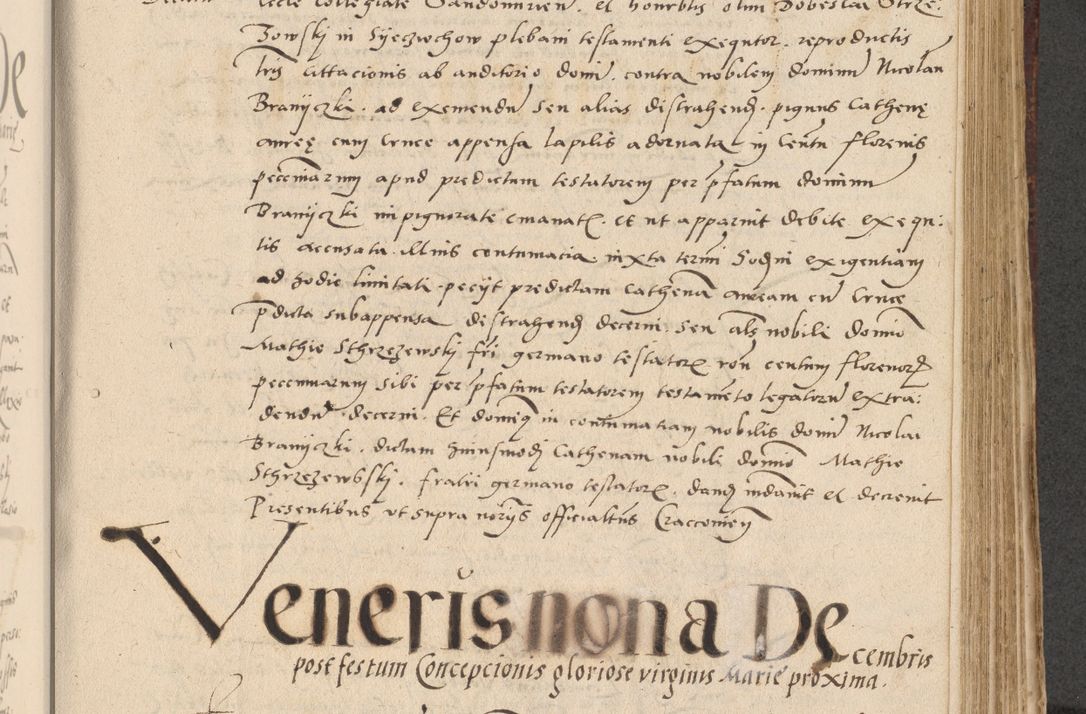 lecie Collegiate Sandomirien. et honrblis olim Dobeslai Strze:
zowskj in Sijeczechow plebani testamenti exequtor. reproductis
Tris littacionis ab auditorio domi. contra nobilem dominu Nicolau
Branijczki. ad exemendu seu alias distrahend. pignus Cathene
auree cum Cruce appensa lapilis adornata in Centu florenis
pecuniarum apud predictum testatorem per pfatum dominu
Branijczki inpignorate emanat. et ut apparuit debite exequ:
tis accusata illius contumacia iuxta termi hodni exigentiam
ad hodie limitati. pecijt predictam Cathena auream cu Cruce
pdicta subappensa distrahend decerni seu als nobili domio
Mathie Sthrzezewskj fri germano testator ron centum florenor
pecuniarum sibi per pfatum testatorem testameto legatoru extra:
dendu. decerni. Et domiq in contumatiam nobilis domi Nicolai
Branijczki. dictam huiusmodj Cathenam nobili domio Mathie
Sthrzezewbskj. fratri germano testator. dand mdauit et decreuit
Presentibus ut supra norijs officialtus Craccouien
Veneris nona Decembris
post festum Concepcionis gloriose virginis Marie proxima.